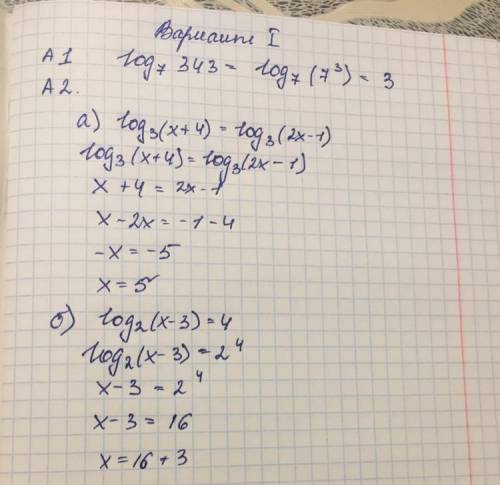 Вариант I
А1 log₇ 343 = log₇ (7³) = 3
А2.
а) log₃(x+4) = log₃(2x-1)
log₃(x+4) = log₃(2x-1)
x + 4 = 2x - 1
x - 2x = -1 - 4
-x = -5
x = 5
б) log₂(x-3) = 4
log₂(x-3) = 2⁴
x - 3 = 2⁴
x - 3 = 16
x = 16 + 3